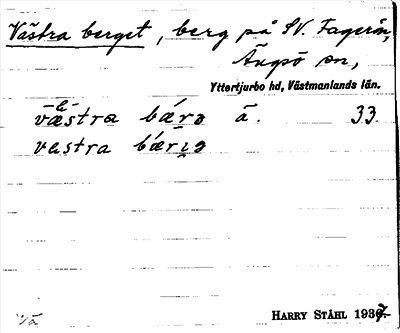 Västra berget, berg på SV. Fagerön,
Ängsö sn,
Yttertjurbo hd, Västmanlands län.
västra bärə ä. 33.
vestra bärɩə
Vä
HARRY STÅHL 1937